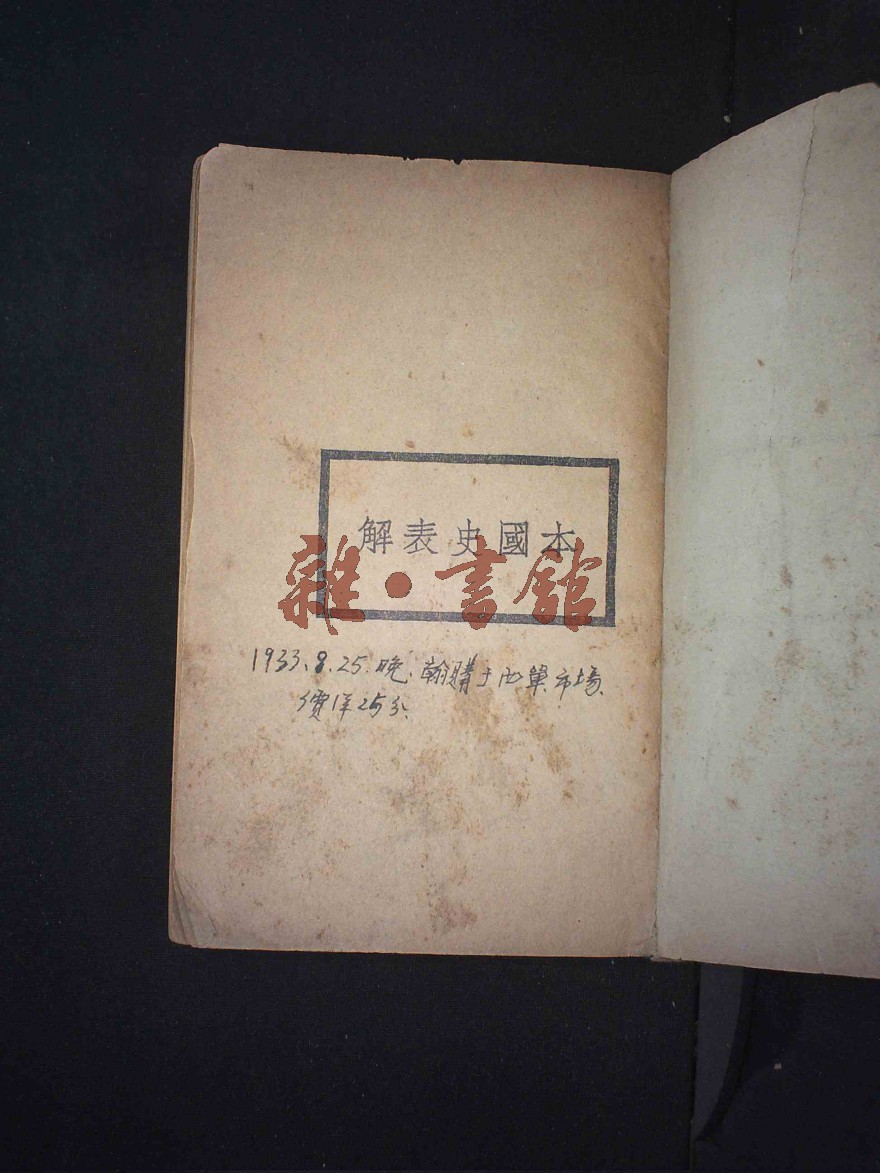 本國史表解
雜·書館
1933.8.25.晚.翰購于西單市場.
價洋25分.